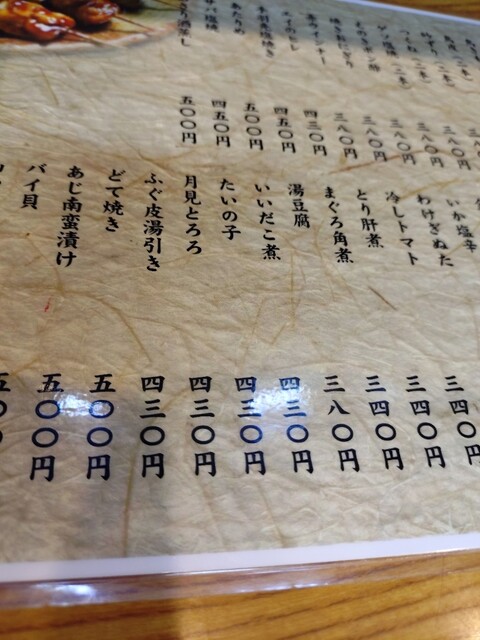 つくね（二本）
焼きおにぎり
赤ウインナー
手羽塩焼き
三八〇円
三八〇円
三八〇円
三八〇円
三八〇円
四三〇円
四五〇円
五〇〇円
四五〇円
五〇〇円
いか塩辛
わけぎぬた
冷しトマト
とり肝煮
まぐろ角煮
湯豆腐
いいだこ煮
たいの子
月見とろろ
ふぐ皮湯引き
どて焼き
あじ南蛮漬け
バイ貝
三四〇円
三四〇円
三四〇円
三八〇円
四三〇円
四三〇円
四三〇円
四三〇円
五〇〇円
五〇〇円
五〇〇